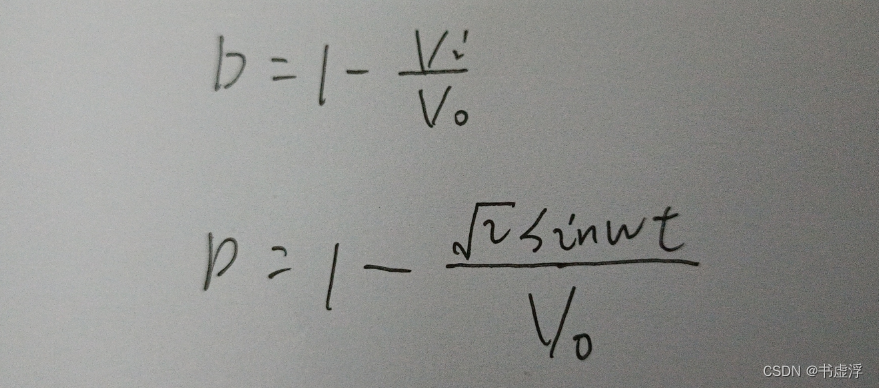 D = 1 - Vi/Vo
D = 1 - √2 sinwt/Vo
CSDN @书虚浮